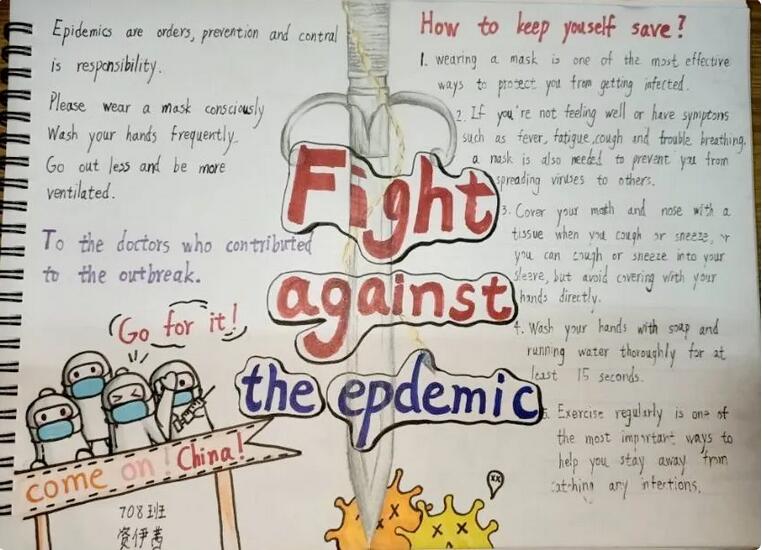 Epidemics are orders, prevention and control
is responsibility.
Please wear a mask consciously
Wash your hands frequently.
Go out less and be more
ventilated.
To the doctors who contributed
to the outbreak.
Go for it!
come on! China!
708班
资伊茜
Fight
against
the epdemic
How to keep youself save?
1. wearing a mask is one of the most effective
ways to protect you from getting infected.
2. If you're not feeling well or have symptoms
such as fever, fatigue, cough and trouble breathing.
a mask is also needed to prevent you from
spreading viruses to others.
3. Cover your moth and nose with a
tissue when you cough or sneeze, or
you can cough or sneeze into your
sleeve, but avoid covering with your
hands directly.
4. Wash your hands with soap and
running water thoroughly for at
least 15 seconds.
5. Exercise regularly is one of
the most important ways to
help you stay away from
catching any infections.